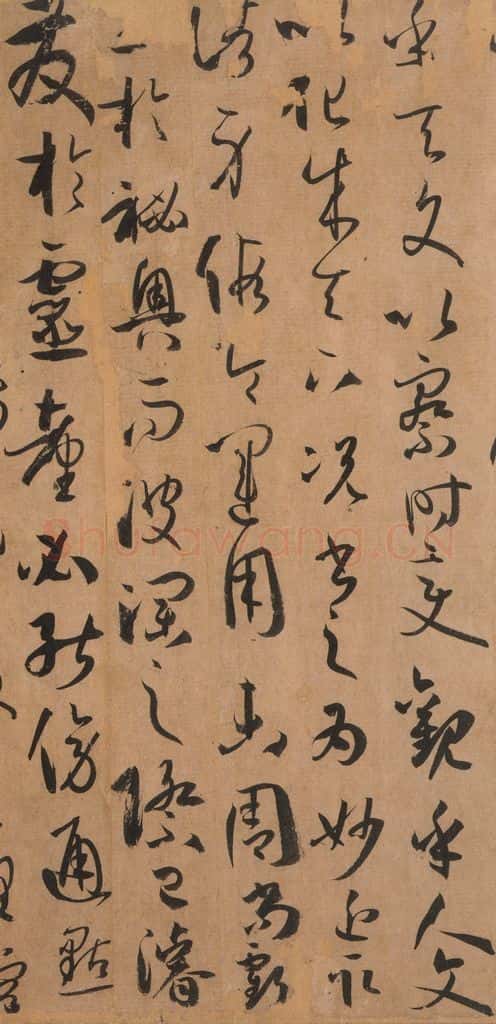 乎天文以察時變觀乎人文
以化成天下況書之為妙近取
諸身假令運用未周尚虧
工於祕奧而波瀾之際已濬
發於靈臺必能傍通點
Shufawang.CN